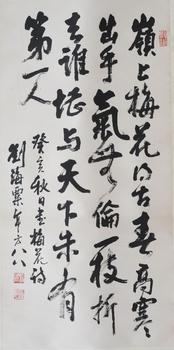 嶺上梅花得古春高寒
出手氣無倫一枝折
去誰堪与天下未有
第一人
癸亥秋日書梅花詩
劉海粟年方八八